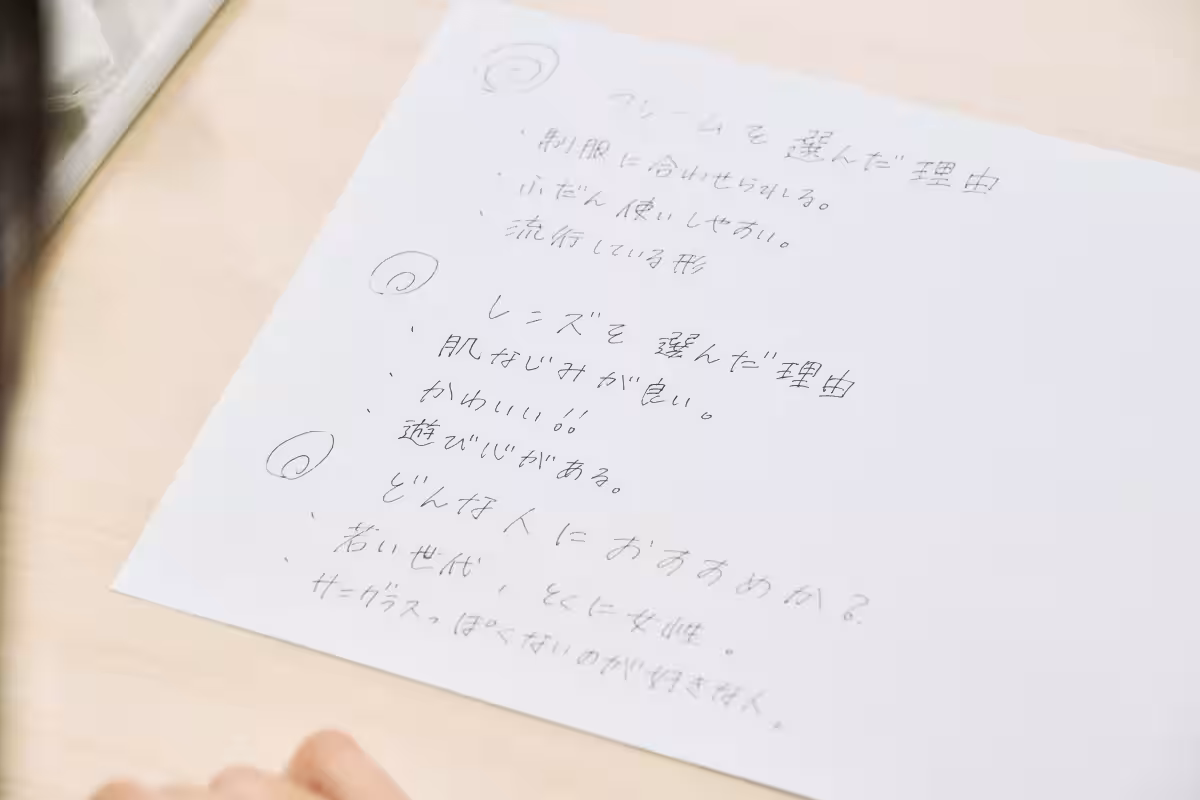 フレームを選んだ理由
・制服に合わせられる。
・ふだん使いしやすい。
・流行している形
レンズを選んだ理由
・肌なじみが良い。
・かわいい!!
・遊び心がある。
どんな人におすすめか?
・若い世代、とくに女性。
・サングラスっぽくないのが好きな人。